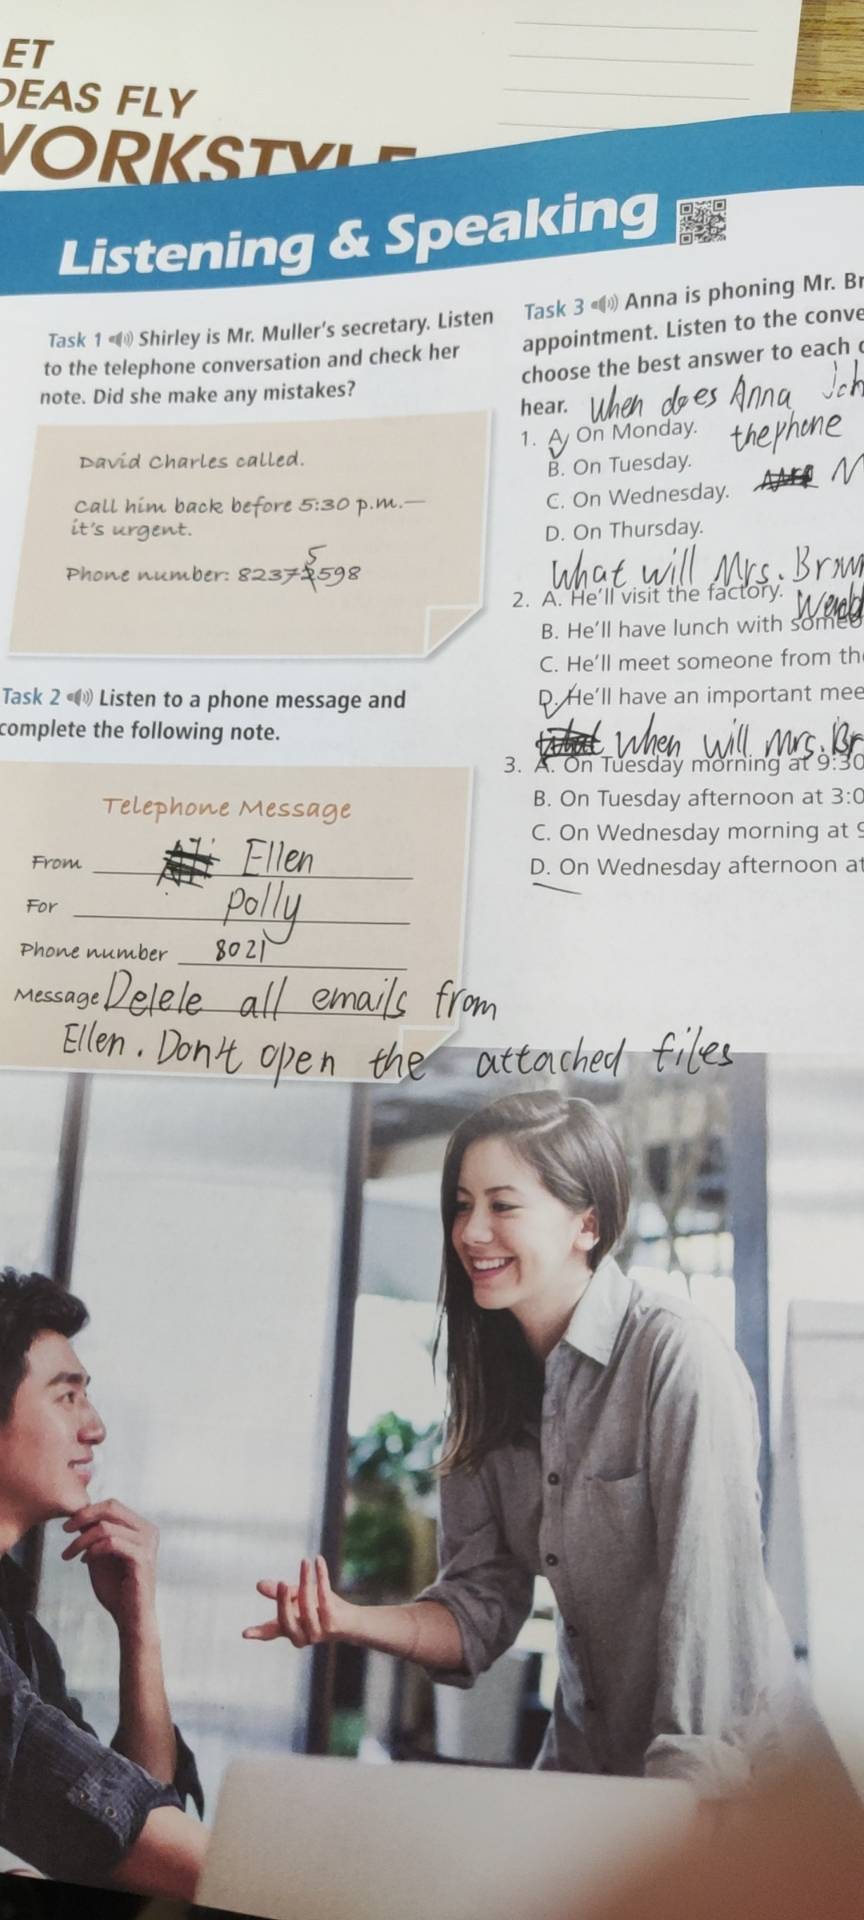 ET
DEAS FLY
WORKSTYLE
Listening & Speaking
Task 1 Shirley is Mr. Muller's secretary. Listen
to the telephone conversation and check her
note. Did she make any mistakes?
David Charles called.
Call him back before 5:30 p.m.—
it's urgent.
5
Phone number: 82372598
Task 2 Listen to a phone message and
complete the following note.
Telephone Message
From Ellen
For Polly
Phone number 8021
Message Delele all emails from
Ellen. Don't open the attached files
Task 3 Anna is phoning Mr. Br
appointment. Listen to the conve
choose the best answer to each
hear. When does Anna
1. A. On Monday. the phone
B. On Tuesday.
C. On Wednesday.
D. On Thursday.
What will Mrs. Brow
2. A. He'll visit the factory.
B. He'll have lunch with someo
C. He'll meet someone from th
D. He'll have an important mee
When will Mrs. Br
3. A. On Tuesday morning at 9:30
B. On Tuesday afternoon at 3:0
C. On Wednesday morning at 9
D. On Wednesday afternoon at